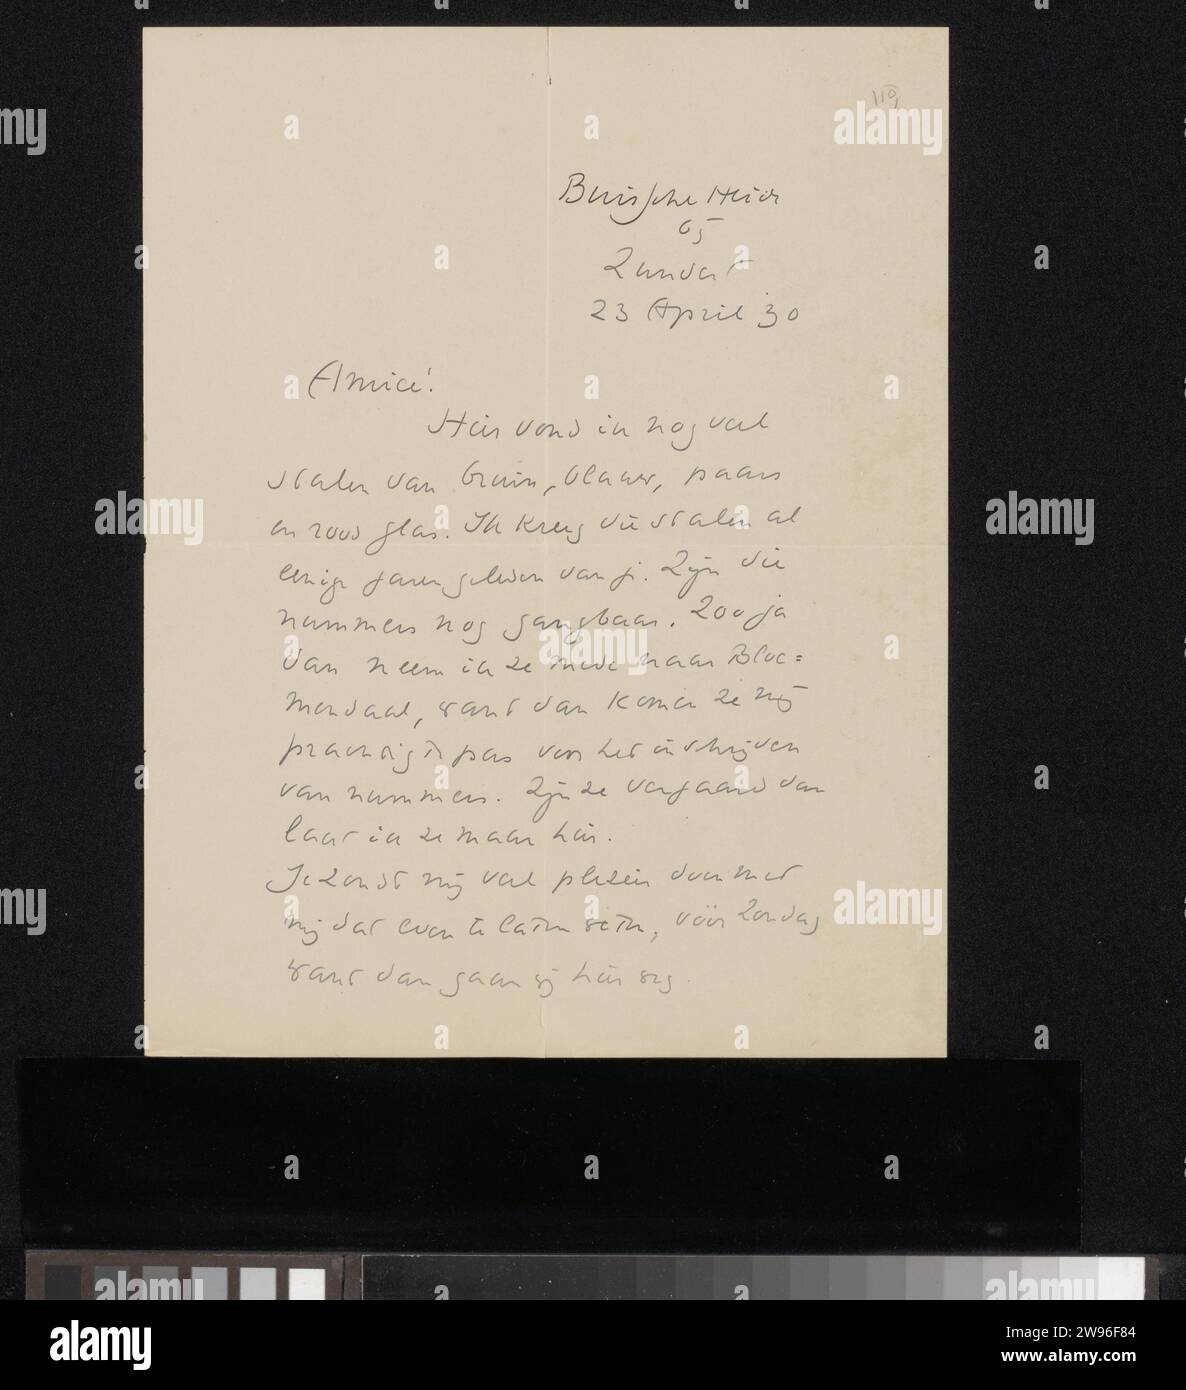 119
Buissche Heide
65
Zundert
23 April '30
Amice!
Hier vond ik nog veel
stalen van bruin, blauw, paars
en rood glas. Ik kreeg die stalen al
eenige jaren geleden van je. Zijn die
nummers nog gangbaar. Zoo ja
dan neem ik ze mede naar Bloe=
mendaal, want dan komen ze mij
prachtig te pas voor het inschrijven
van nummers. Zijn ze verjaard dan
laat ik ze maar hier.
Je zoudt mij veel plezier doen met
mij dat even te laten weten, vóór Zondag
want dan gaan wij hier weg.
alamy
alamy
Image ID: 2W96F84
www.alamy.com